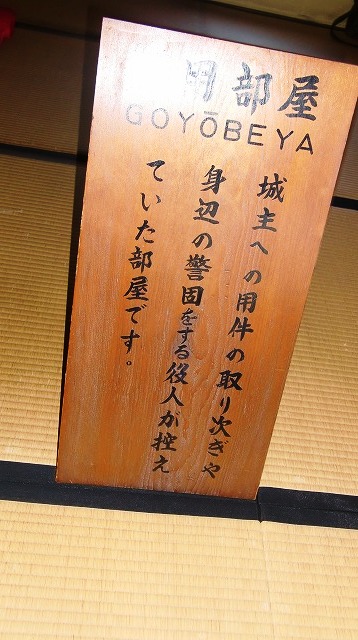 用部屋
GOYŌBEYA
城主への用件の取り次ぎや
身辺の警固をする役人が控え
ていた部屋です。